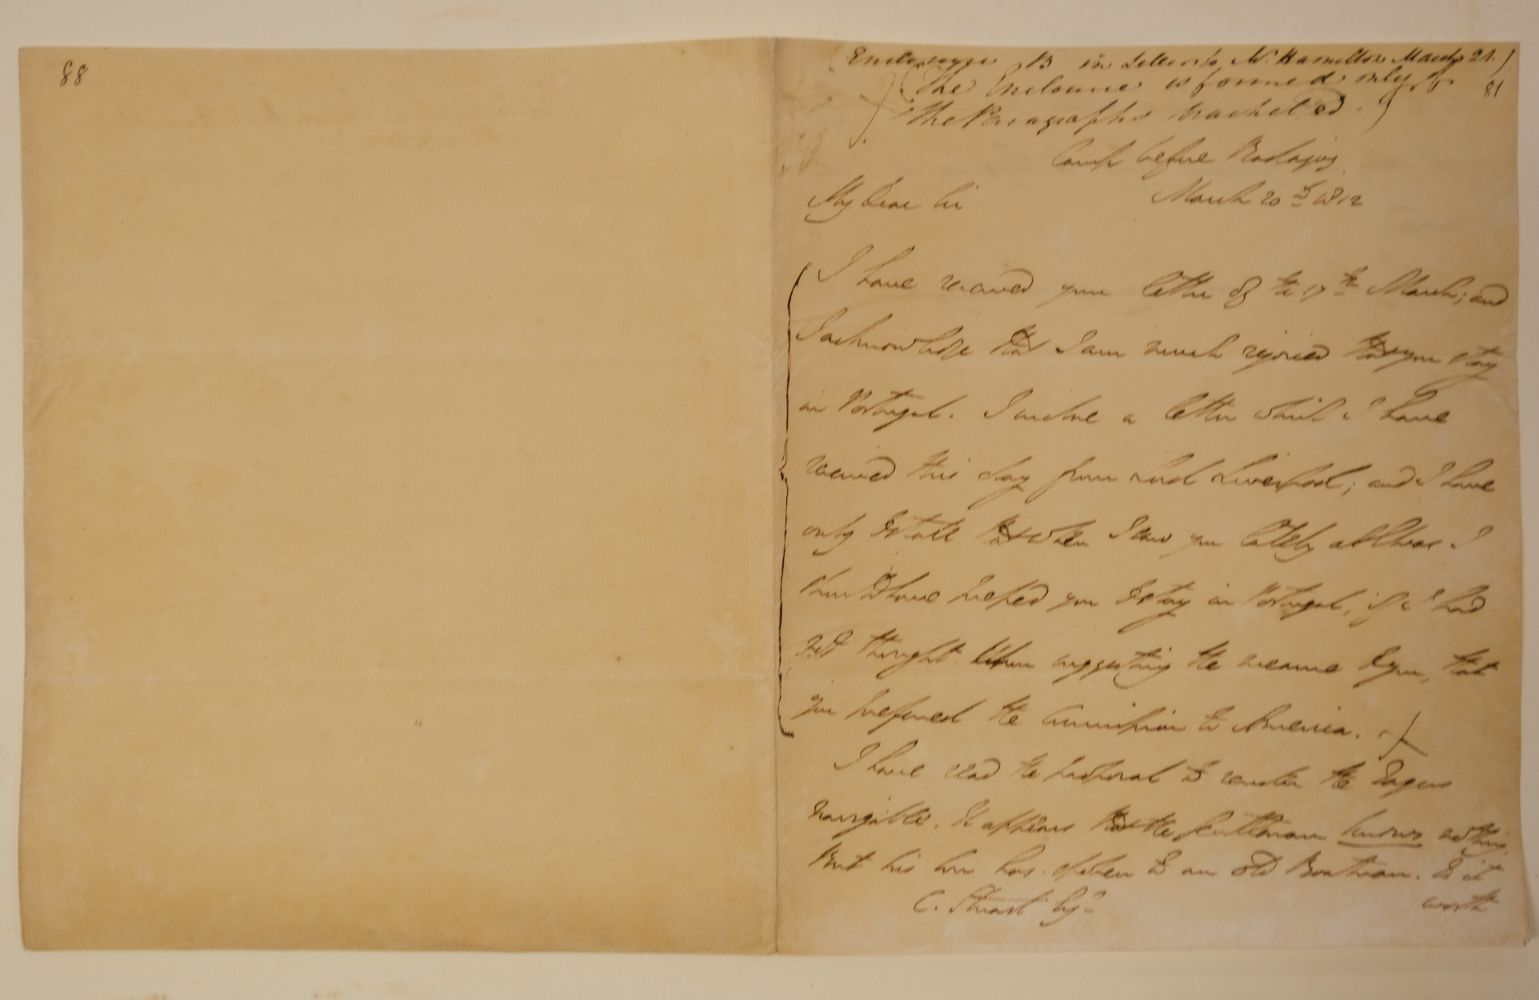 88
(Enclosure B in letter to Mr. Hamilton March 21.)
(The Enclosure is formed only of
81
the Paragraphs bracketted.)
Camp before Badajoz
My dear Sir March 20th 1812
I have received your letter of the 17th March; and
I acknowledge that I am much rejoiced that you stay
in Portugal. I enclose a letter which I have
received this day from Lord Liverpool; and I have
only to state that when I saw you lately at Elvas I
should have pressed you to stay in Portugal, if I had
not thought upon suggesting the measure to you, that
you preferred the Commission to America.
I have read the proposal to render the Tagus
navigable. It appears that the gentleman knows nothing.
But his son has spoken to an old Boatman. Is it
C. Stuart Esqr worth